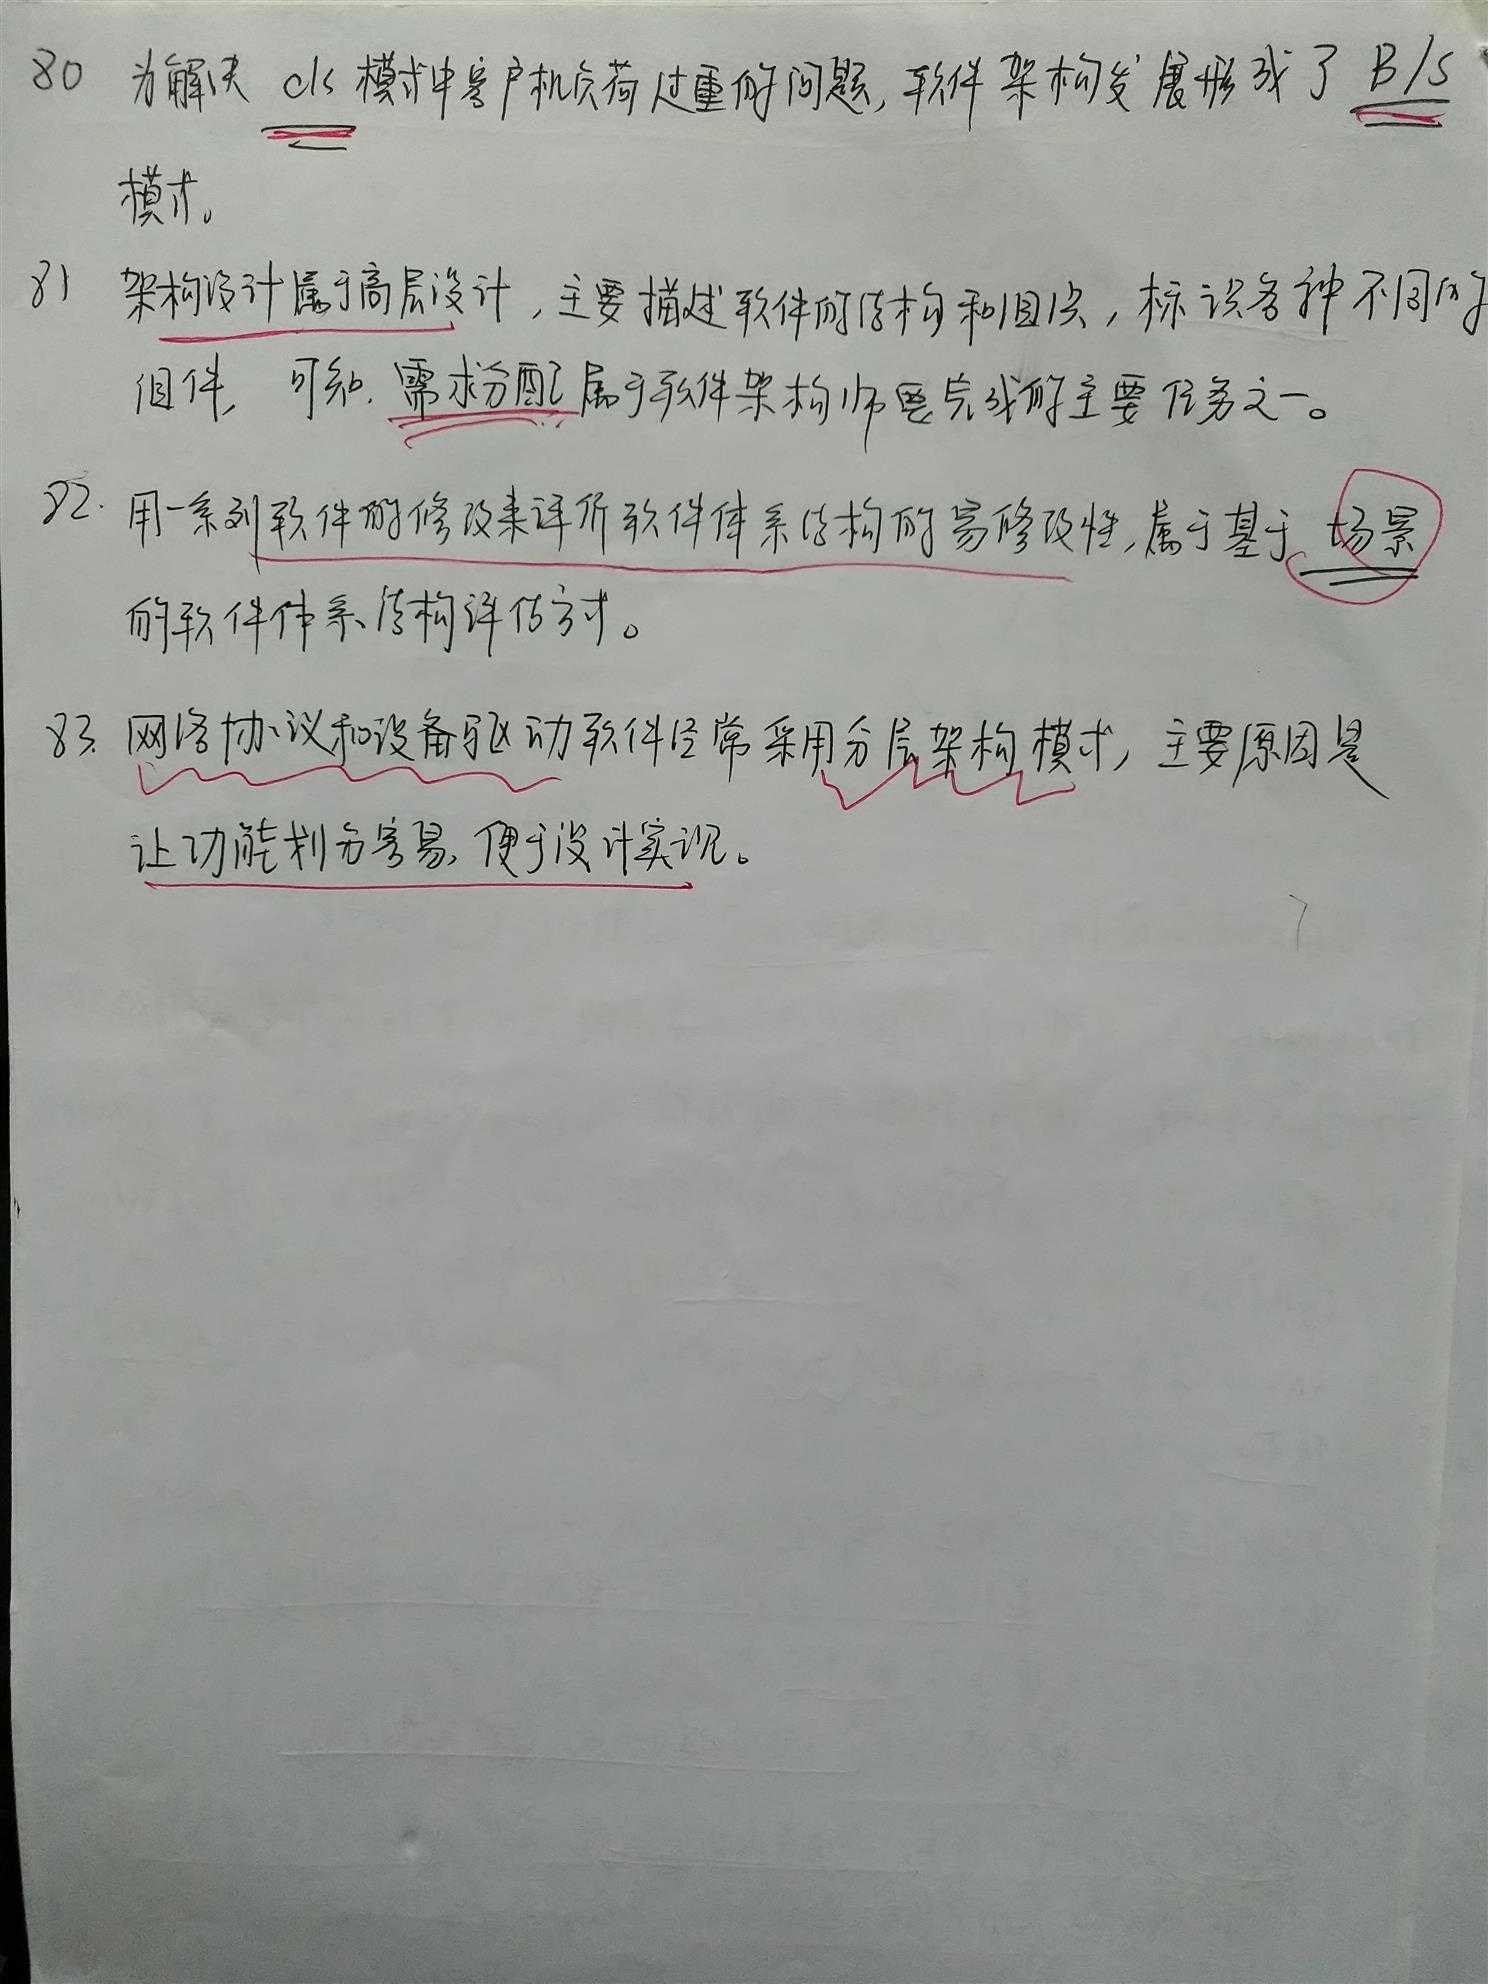 80 为解决 c/s 模式中客户机负荷过重的问题,软件架构发展形成了 B/S
模式。
81 架构设计属于高层设计,主要描述软件的结构和组成,标识各种不同的
组件,可知,需求分配属于软件架构师要完成的主要任务之一。
82. 用一系列软件的修改来评价软件体系结构的易修改性,属于基于 场景
的软件体系结构评估方式。
83. 网络协议和设备驱动软件经常采用分层架构模式,主要原因是
让功能划分容易,便于设计实现。